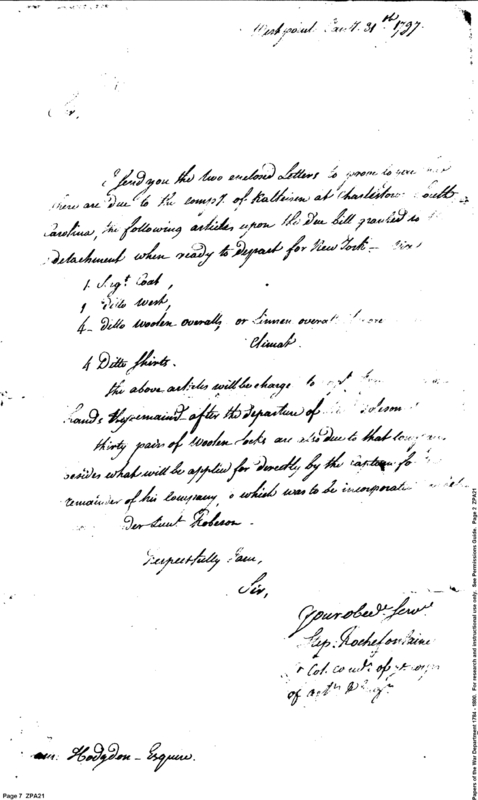 West point Jany. 31st 1797.
Sir,
I send you the two enclosed Letters to prove to you
there are due to the compy. of Kalteisen at Charlestown South
Carolina, the following articles upon the Due bill granted to
detachment when ready to Depart for New York –
1 Sergt. Coat,
1 Ditto Vest,
4 – Ditto woolen overalls, or Linnen overalls
Climat.
4 Ditto Shirts.
the above articles will be charge to
hands they remaind after the departure of
thirty pair of Woolen Socks are also due to that company
besides what will be applied for directly by the captain for
remainder of his company, which was to be incorporate
der Lieut Roberson.
Respectfully I am,
Sir,
Your obedt. Servt
Step. Rochefontaine
Lt Col. comdt. of ye corps
of artty & Engrs
Hodgdon – Esquire.
Page 7 ZPA21
Papers of the War Department 1784 - 1800. For research and instructional use only. See Permissions Guide. Page 2 ZPA21